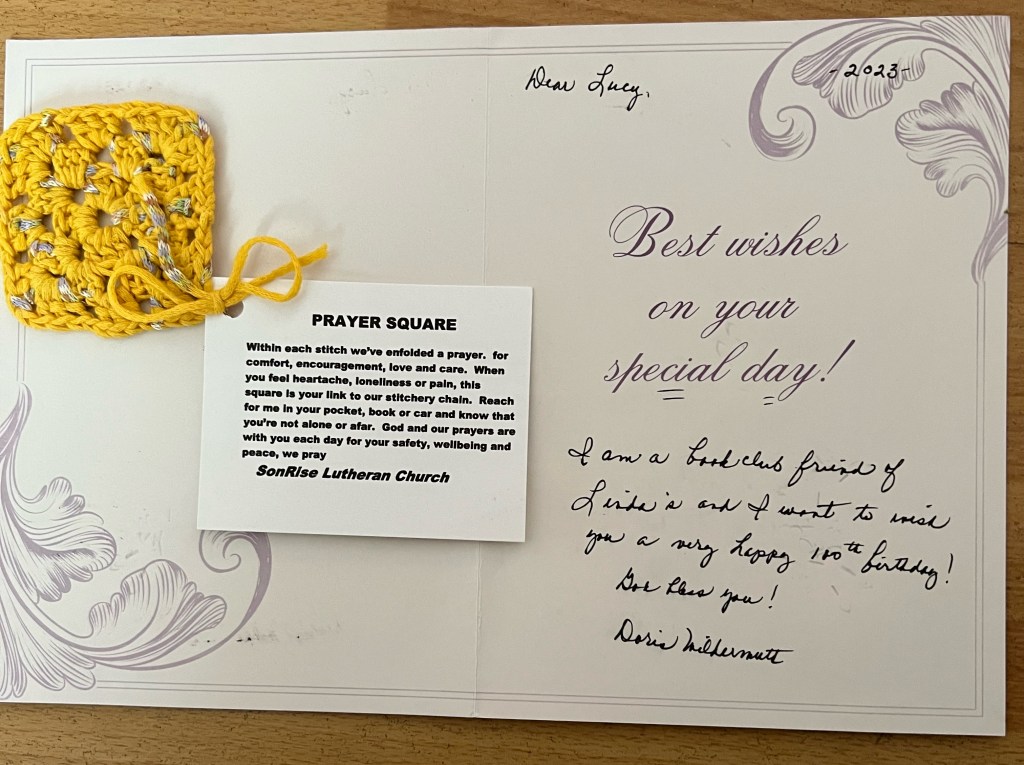 PRAYER SQUARE
Within each stitch we've enfolded a prayer. for
comfort, encouragement, love and care. When
you feel heartache, loneliness or pain, this
square is your link to our stitchery chain. Reach
for me in your pocket, book or car and know that
you're not alone or afar. God and our prayers are
with you each day for your safety, wellbeing and
peace, we pray
SonRise Lutheran Church
-2023-
Dear Lucy,
Best wishes
on your
special day!
I am a bookclub friend of
Linda's and I want to wish
you a very happy 100th birthday!
God bless you!
Doris Wildermutt